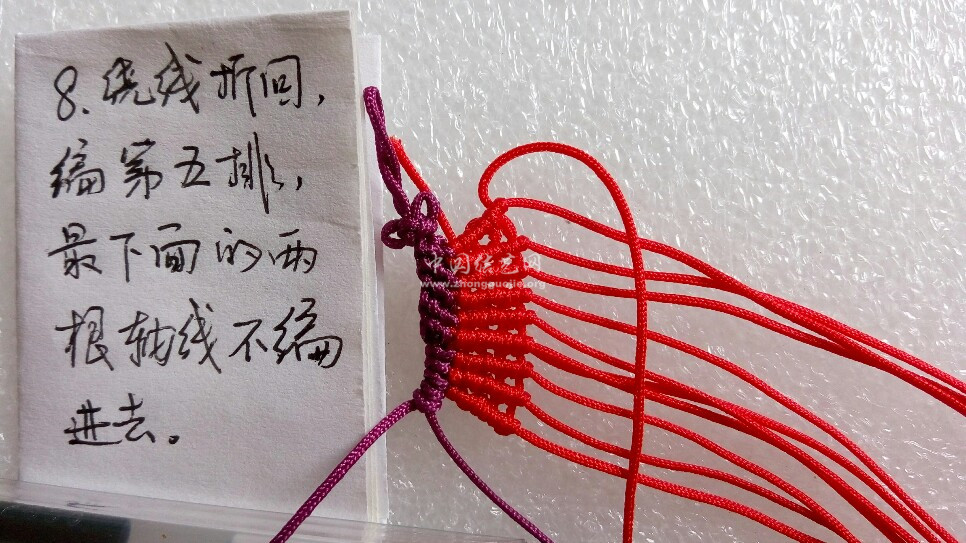 8、绕线折回，
编第五排，
最下面的两
根轴线不编
进去。
中国结艺网
www.zhongguojie.org